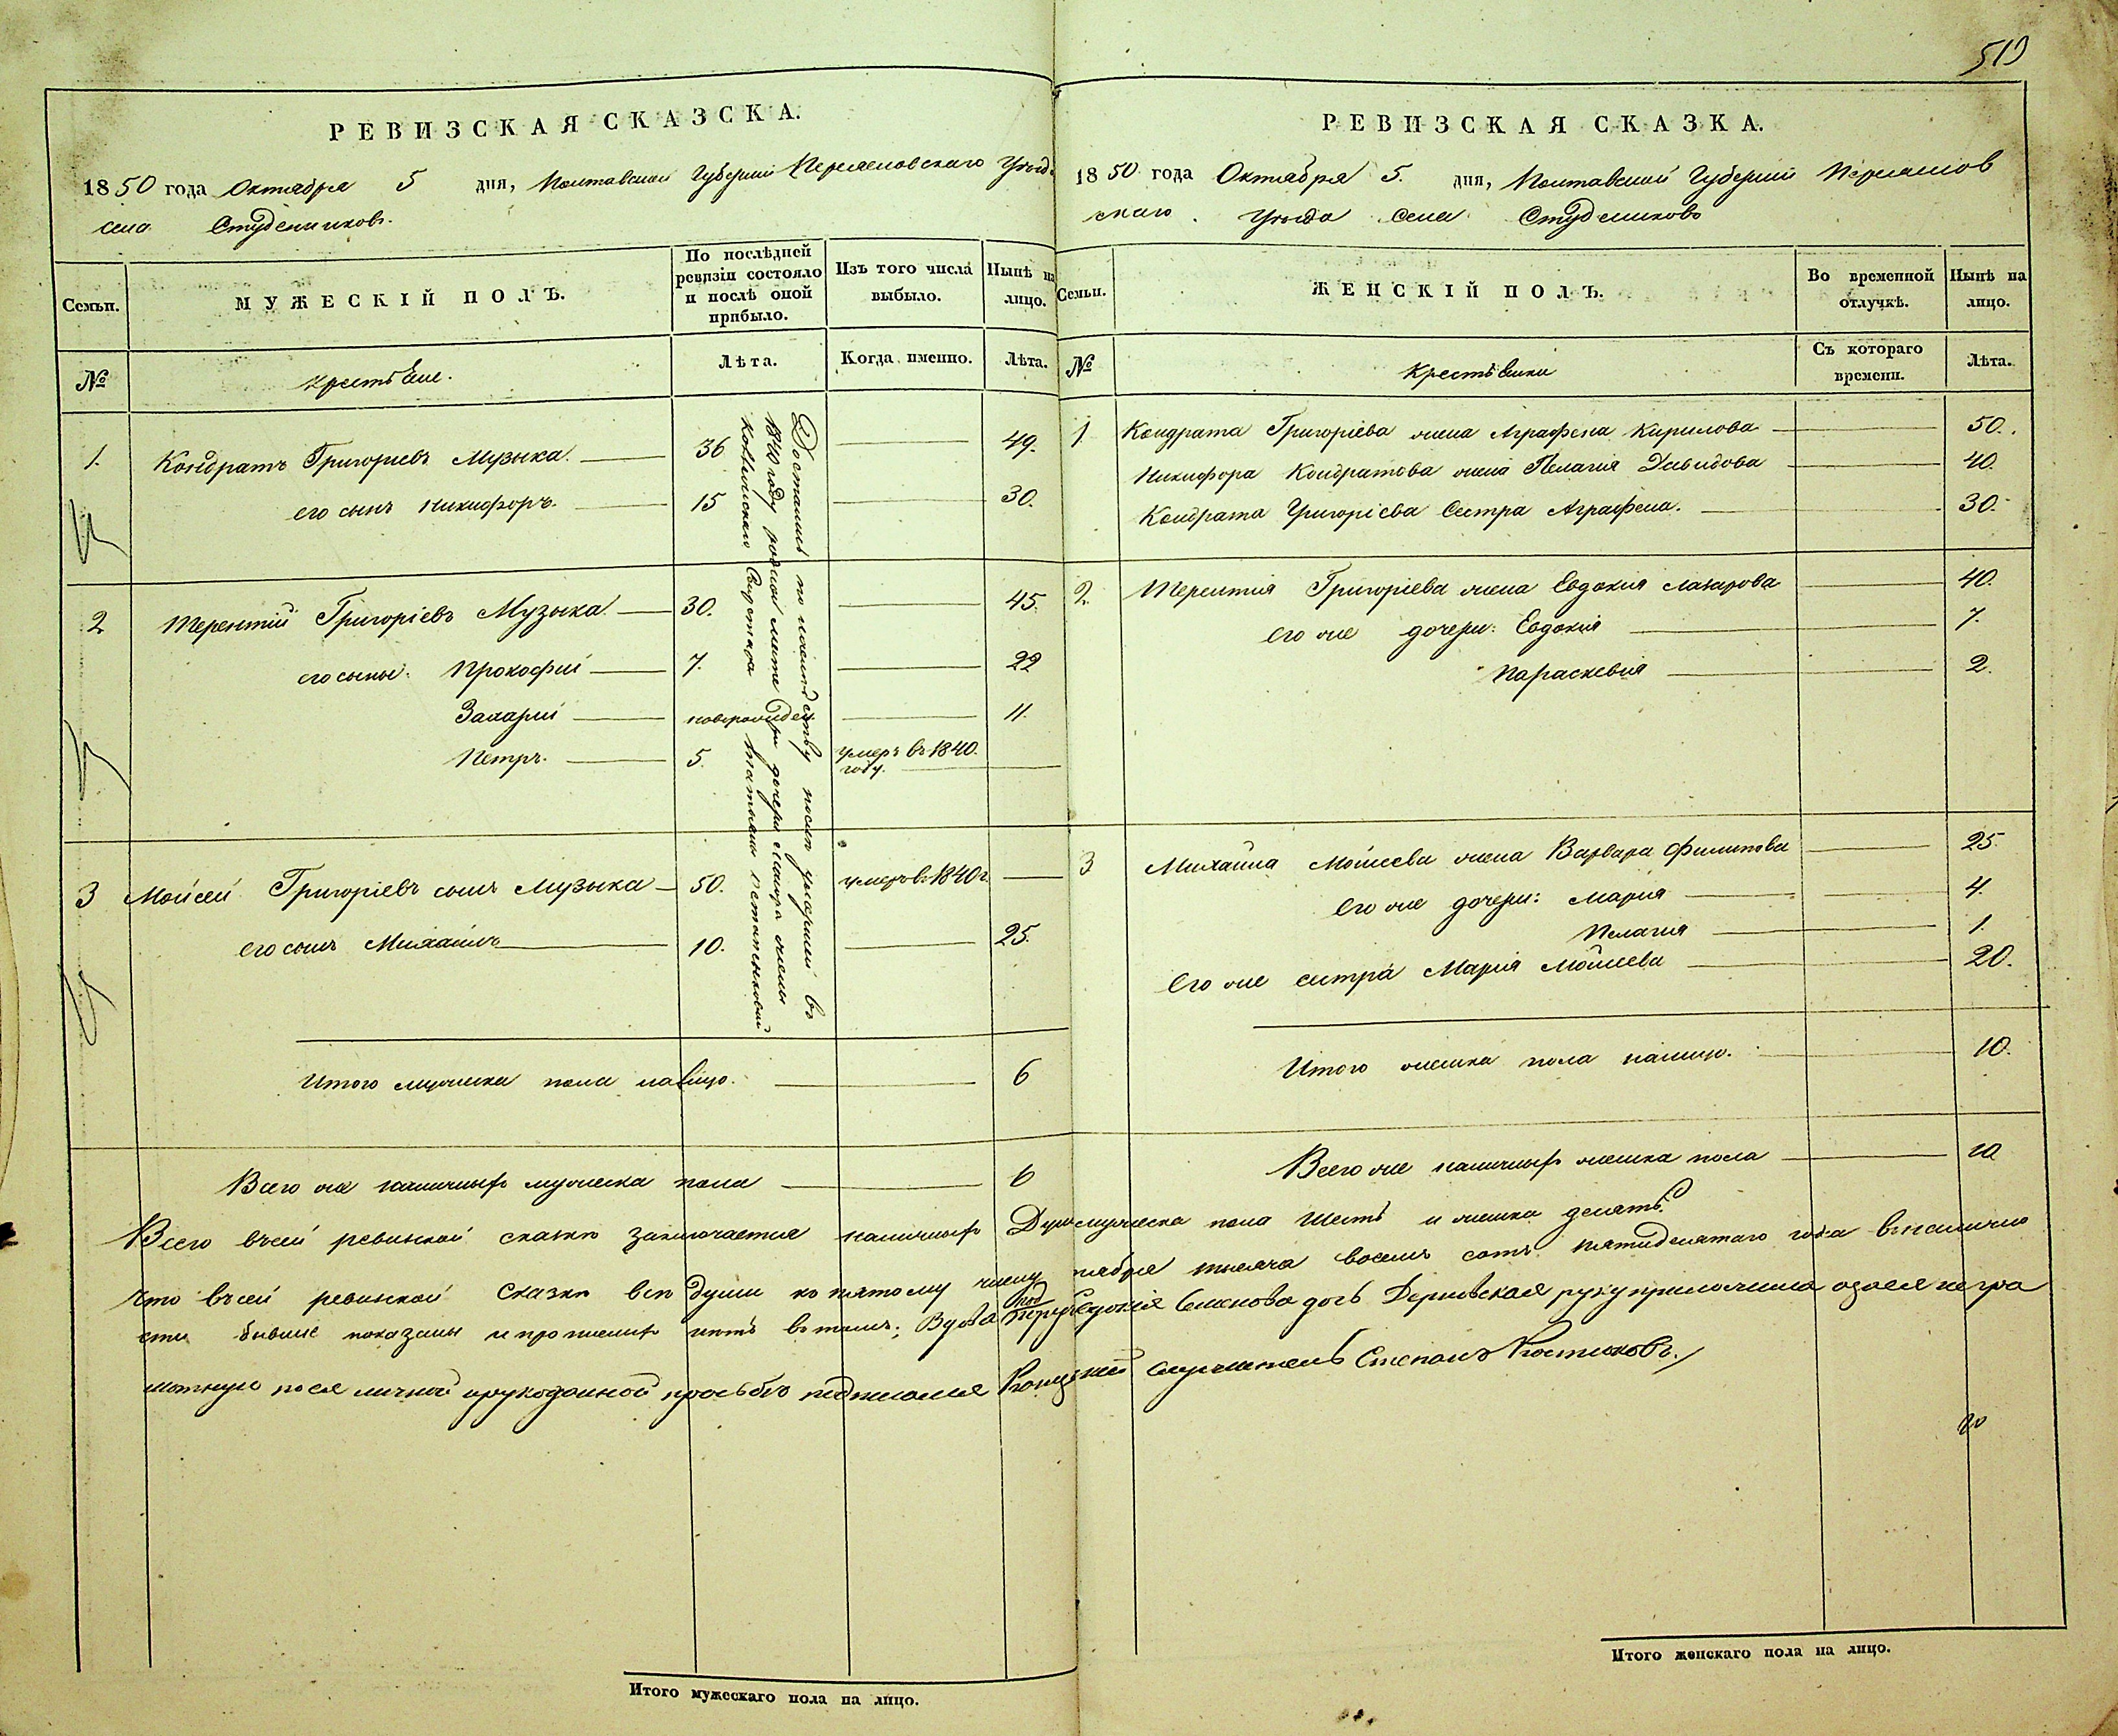 519
РЕВИЗСКАЯ СКАЗСКА.
1850 года Октября 5 дня, Полтавской Губернии Переяславскаго Уѣзда
села Студениковъ.
Семьи.
МУЖЕСКІЙ ПОЛЪ.
По послѣдней ревизіи состояло и послѣ оной прибыло.
Изъ того числа выбыло.
Нынѣ на лицо.
№
Крестьяне.
Лѣта.
Когда именно.
Лѣта.
1. Кондратъ Григорьевъ Музыка. 36 49.
его сынъ Никифоръ. 15 30.
2 Терентий Григоріевъ Музыка 30. 45.
его сыны: Прокофий 7. 22
Захарий новорожден 11.
Петръ. 5. умеръ въ 1840. году.
3 Мойсей Григоріевъ сынъ Музыка 50. умеръ в. 1840 г.
его сынъ Михаилъ 10. 25.
Достались по наследству после умершей в
1840 году родной дочери жены
Итого мужеска пола налицо. 6
Всего же наличныхъ мужеска пола 6
РЕВИЗСКАЯ СКАЗКА.
1850 года Октября 5. дня, Полтавской Губернии Переяслов
скаго Уѣзда Села Студениково
Семьи.
ЖЕНСКІЙ ПОЛЪ.
Во временной отлучкѣ.
Нынѣ на лицо.
№
Крестьянки
Съ котораго времени.
Лѣта.
1 Кондрата Григоріева жена Аграфена Кирилова 50.
Никифора Кондратова жена Пелагия Давидова 40.
Кондрата Григоріева Сестра Аграфена. 30.
2. Терентия Григоріева жена Евдокия Лазарова 40.
его же дочери: Евдокия 7.
Параскевия 2.
3 Михаила Мойсеева жена Варвара Филипова 25.
его же дочери: Мария 4.
Пелагия 1.
его же сестра Марія Мойсеева 20.
Итого женска пола налицо. 10.
Всего же наличныхъ женска пола 10
Всего въсей ревизской сказке заключается наличныхъ Душъ мужеска пола шесть и женска десять.
Что въсей ревизской Сказке все души ко пятому числу тысяча восемь сотъ пятидесятаго года вналично
сти бывшие показаны и прописныхъ нетъ в томъ; Вдова Евдокія Семенова дочь руку приложила а за ея негра
мотную по ея личной ирукоданной просьбе подписался Служитель Степанъ Костюковъ.
Итого мужескаго пола на лицо.
Итого женскаго пола на лицо.